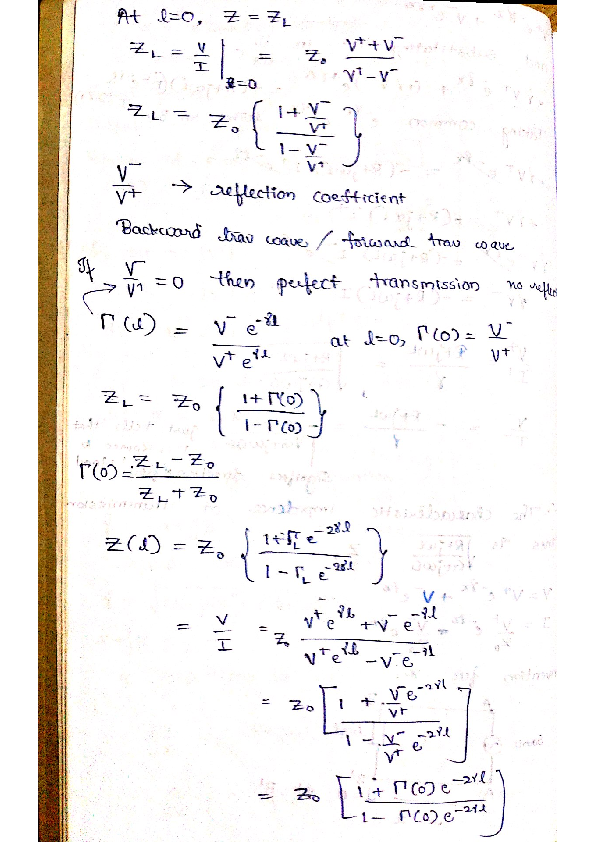 At l=0, Z = Z_L
Z_L = V/I |_{l=0} = Z_0 (V⁺+V⁻)/(V⁺-V⁻)
Z_L = Z_0 { (1 + V⁻/V⁺)/(1 - V⁻/V⁺) }
V⁻/V⁺ → reflection coefficient
Backward trav wave / forward trav wave
If V⁻/V⁺ = 0 then perfect transmission no reflec
Γ(l) = (V⁻ e^{-γl})/(V⁺ e^{γl}) at l=0, Γ(0) = V⁻/V⁺
Z_L = Z_0 { (1+Γ(0))/(1-Γ(0)) }
Γ(0) = (Z_L - Z_0)/(Z_L + Z_0)
Z(l) = Z_0 { (1+Γ_L e^{-2γl})/(1-Γ_L e^{-2γl}) }
= V/I = Z_0 (V⁺e^{γl} + V⁻e^{-γl})/(V⁺e^{γl} - V⁻e^{-γl})
= Z_0 [ (1 + V⁻/V⁺ e^{-2γl})/(1 - V⁻/V⁺ e^{-2γl}) ]
= Z_0 [ (1 + Γ(0) e^{-2γl})/(1 - Γ(0) e^{-2γl}) ]